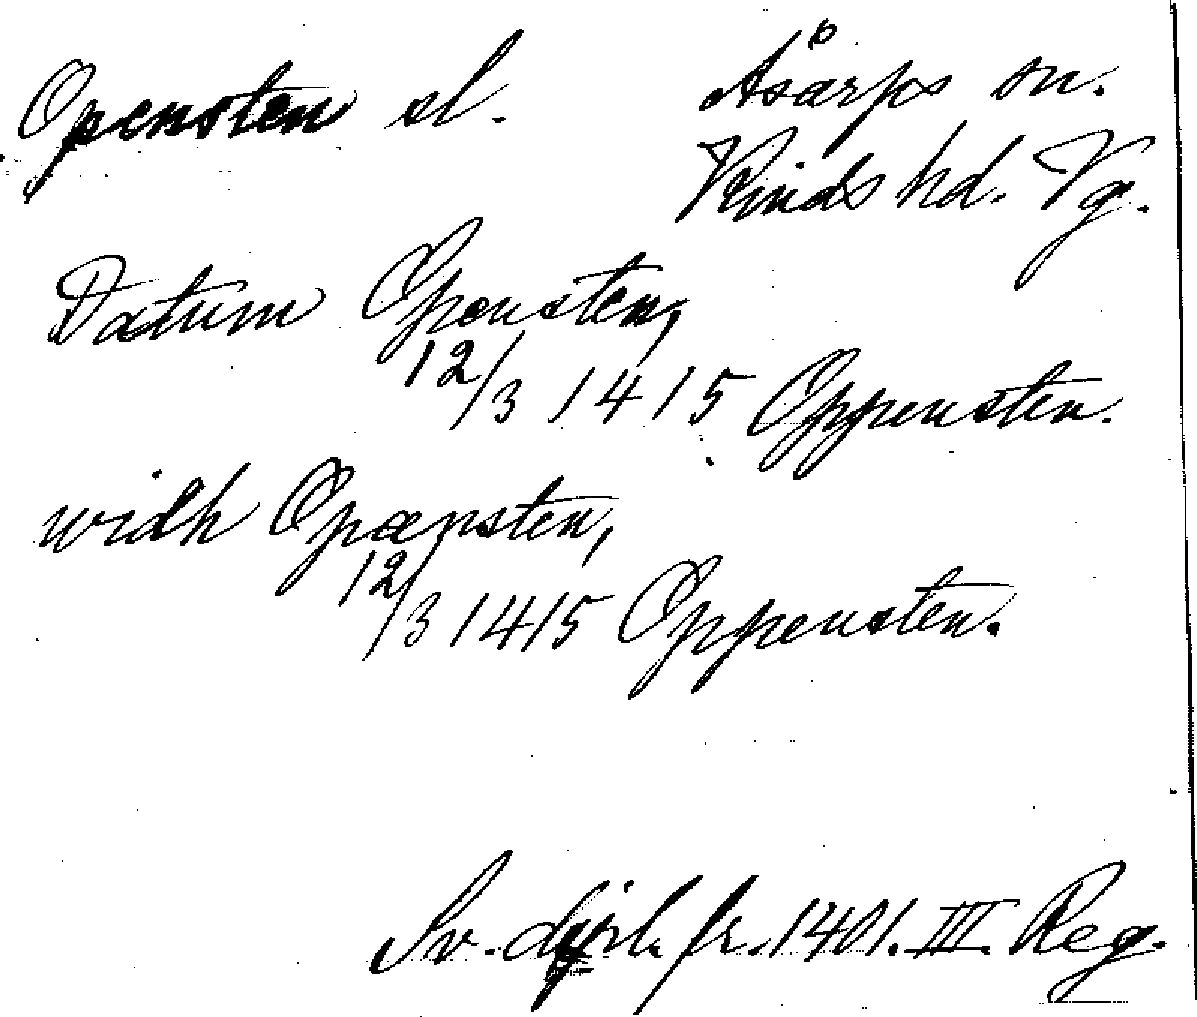 Opensten sl. Åsarps sn.
Kinds hd. Vg.
Datum Opensten,
12/3 1415 Oppensten.
widh Opænsten,
12/3 1415 Oppensten.
Sv. dipl. fr. 1401. III. Reg.